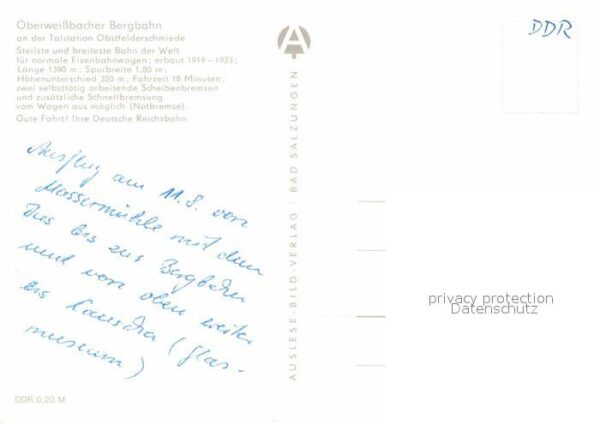 Oberweißbacher Bergbahn
an der Talstation Obstfelderschmiede
Steilste und breiteste Bahn der Welt
für normale Eisenbahnwagen; erbaut 1919–1923;
Länge 1390 m; Spurbreite 1,80 m;
Höhenunterschied 320 m; Fahrzeit 18 Minuten;
zwei selbsttätig arbeitende Scheibenbremsen
und zusätzliche Schnellbremsung
vom Wagen aus möglich (Notbremse).
Gute Fahrt! Ihre Deutsche Reichsbahn
Ausflug am 11.8. von
Massermühle mit dem
Bus bis zur Bergbahn
und von oben weiter
bis Lauscha (Glas-
museum)
DDR 0,20 M
AUSLESE BILD-VERLAG · BAD SALZUNGEN
DDR
privacy protection
Datenschutz